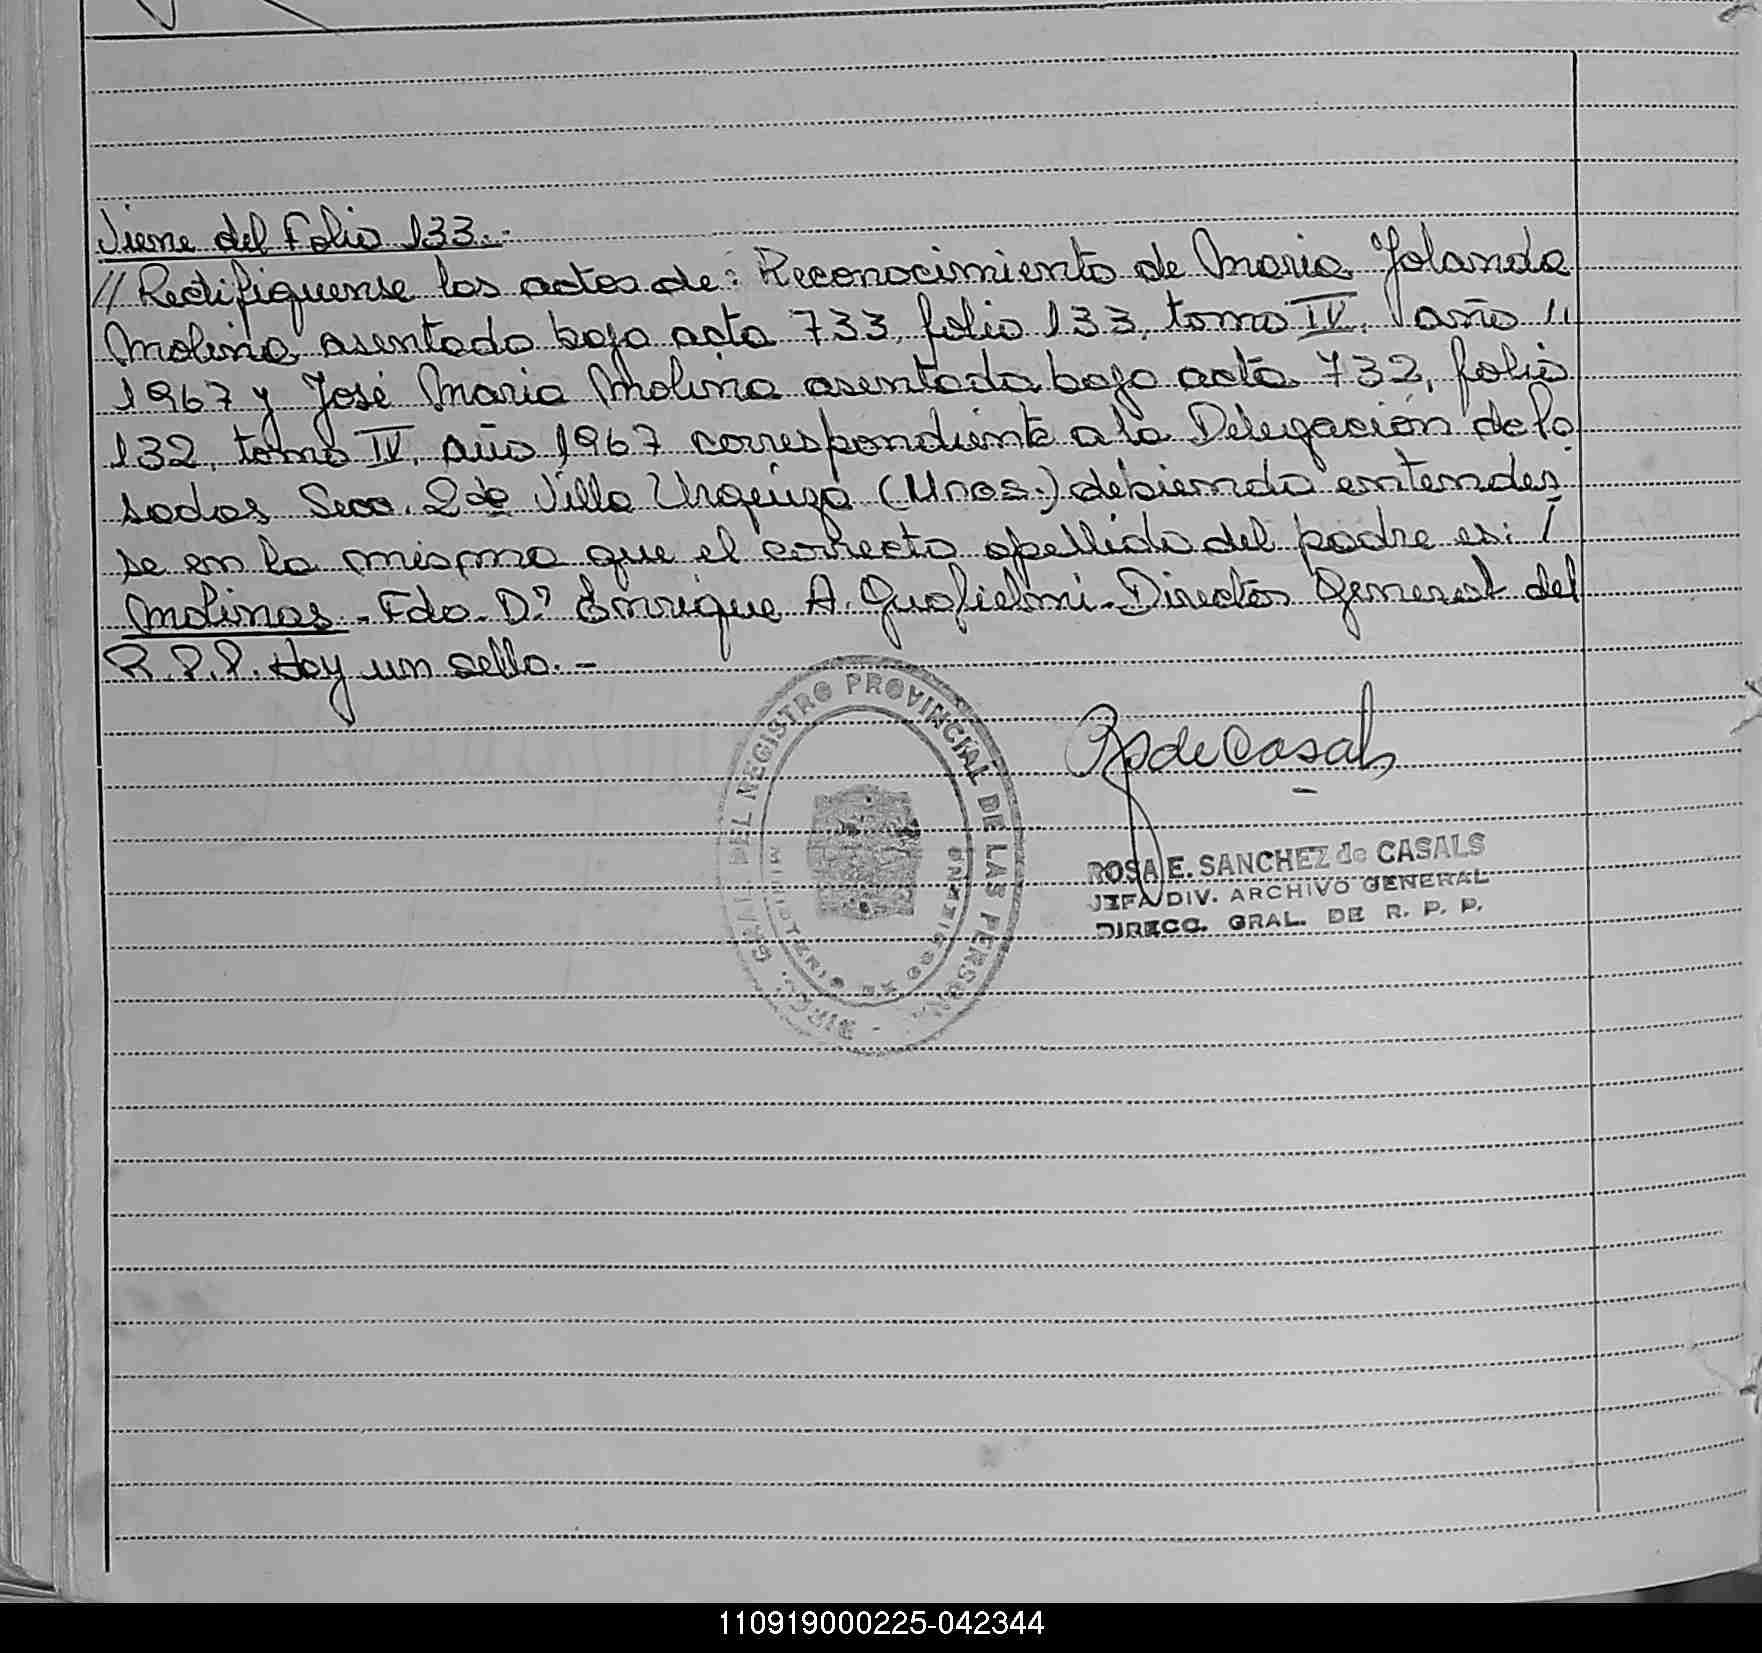 Viene del Folio 133.-
// Rectifíquense las actas de: Reconocimiento de Maria Yolanda
Molina asentada bajo acta 733, folio 133, tomo IV, año //
1967 y José Maria Molina asentada bajo acta 732, folio
132, tomo IV, año 1967 correspondiente a la Delegación de Po
sadas Secc. 2da Villa Urquiza (Mnes.) debiendo entender
se en la misma que el correcto apellido del padre es: /
Molinas.- Fdo. Dr. Enrique A. Gualielmi.- Director General del
R.P.P. Hay un sello.-
RSdeCasals
ROSA E. SANCHEZ de CASALS
JEFA DIV. ARCHIVO GENERAL
DIRECC. GRAL. DE R. P. P.
DIRECC. GRAL. DEL REGISTRO PROVINCIAL DE LAS PERSONAS
MINISTERIO DE GOBIERNO
110919000225-042344